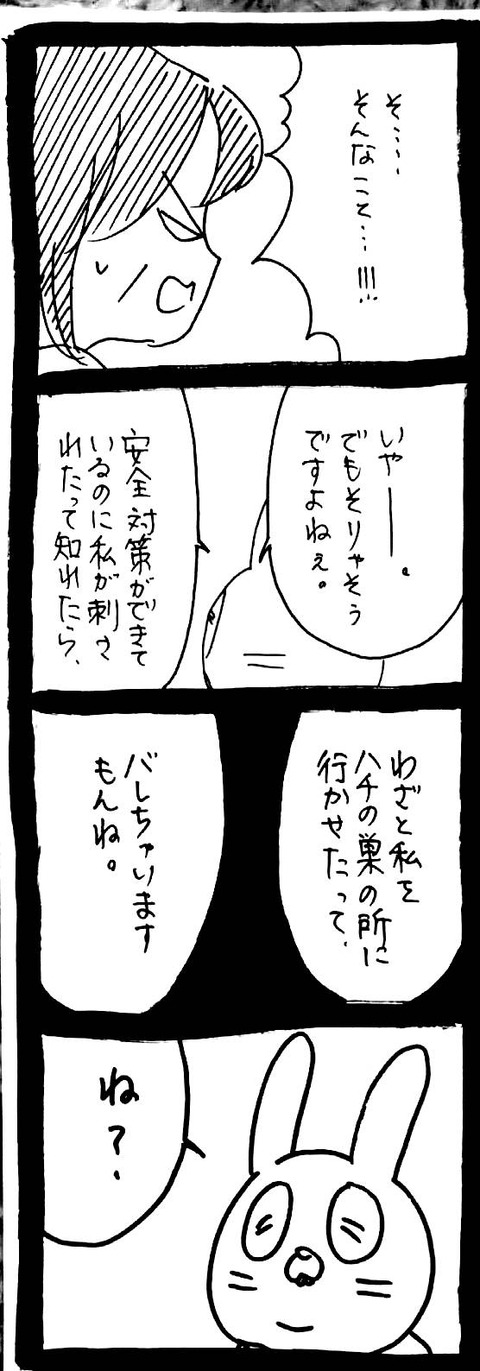 そ‥‥
そんなこと‥‥!!!
いやー。
でもそりゃそう
ですよねぇ。
安全対策ができて
いるのに私が刺さ
れたって知れたら、
わざと私を
ハチの巣の所に
行かせたって、
バレちゃいます
もんね。
ね?